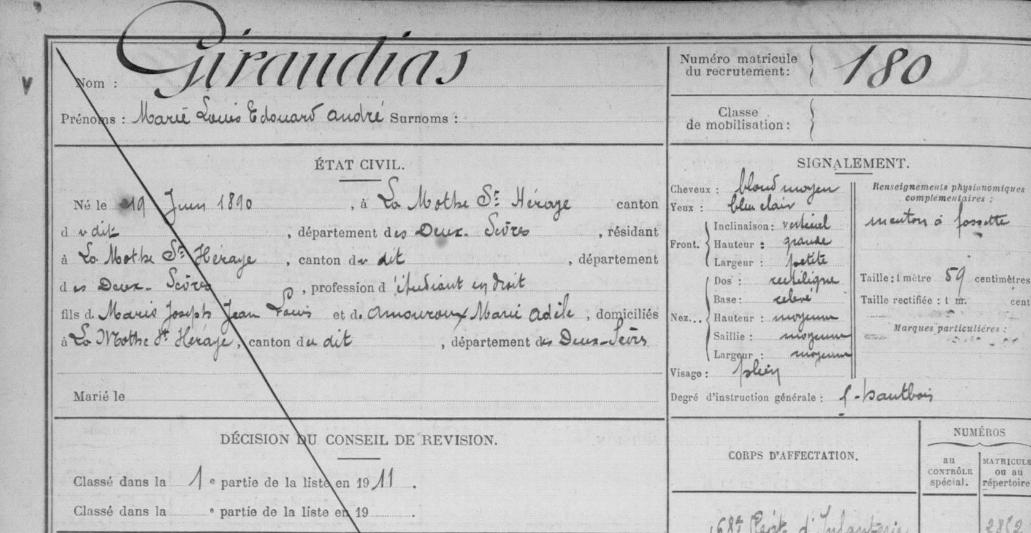 Nom : Giraudias
Prénoms : Marie Louis Edouard André Surnoms :
Numéro matricule du recrutement : 180
Classe de mobilisation :
ÉTAT CIVIL.
Né le 19 Juin 1890, à La Mothe St Héraye canton
du dit, département des Deux-Sèvres, résidant
à La Mothe St Héraye, canton du dit, département
des Deux-Sèvres, profession d'étudiant en droit
fils de Marie Joseph Jean Louis et de Amouroux Marie Adèle, domiciliés
à La Mothe St Héraye, canton du dit, département des Deux-Sèvres
Marié le
SIGNALEMENT.
Cheveux : blond moyen
Yeux : bleu clair
Front. Inclinaison : vertical
Hauteur : grande
Largeur : petite
Nez... Dos : rectiligne
Base : relevé
Hauteur : moyenne
Saillie : moyenne
Largeur : moyenne
Visage : plein
Renseignements physionomiques complémentaires :
menton à fossette
Taille : 1 mètre 59 centimètres
Taille rectifiée : 1 m. cent
Marques particulières :
Degré d'instruction générale :
DÉCISION DU CONSEIL DE REVISION.
Classé dans la 1e partie de la liste en 1911.
Classé dans la e partie de la liste en 19
CORPS D'AFFECTATION.
NUMÉROS
au CONTRÔLE spécial.
MATRICULE ou au répertoire
68e Régt d'Infanterie